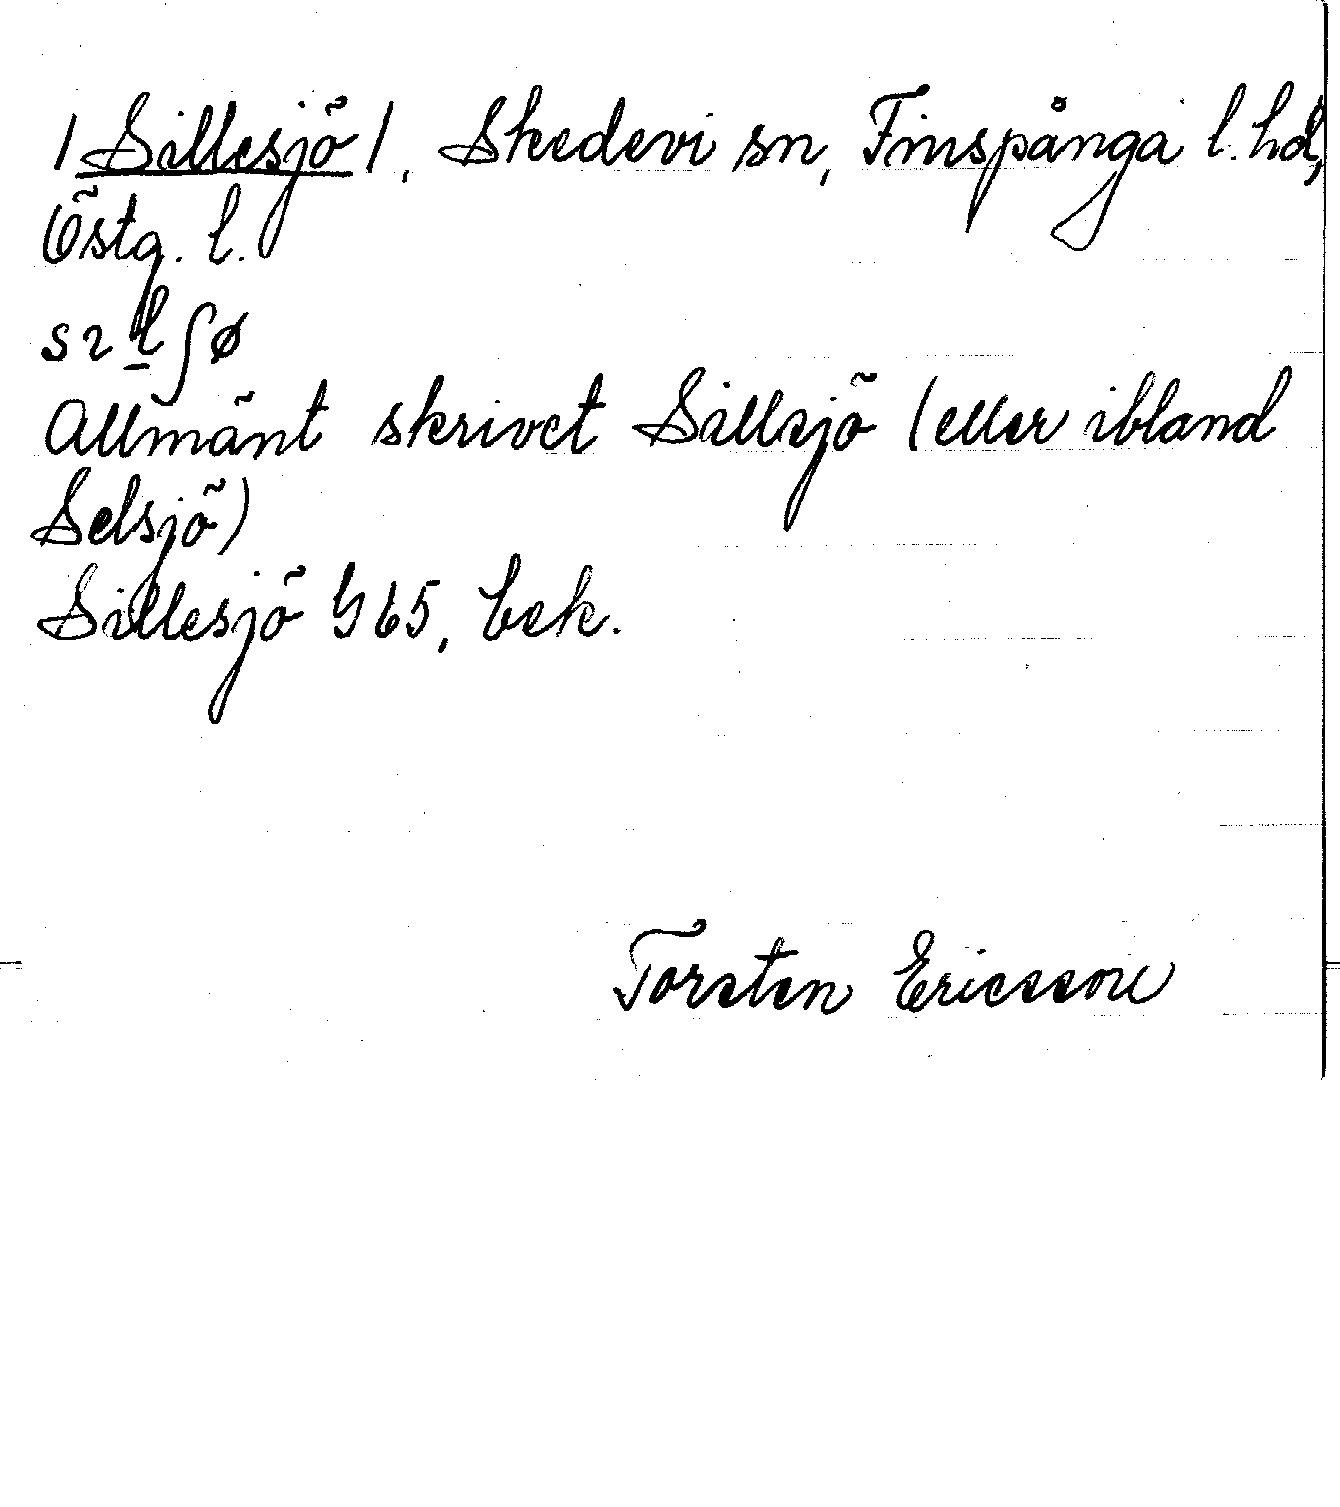 /Sillesjö/, Skedevi sn, Finspånga l. hd,
Östg. l.
Allmänt skrivet Sillsjö (eller ibland
Selsjö)
Sillesjö G 65, bek.
Torsten Ericsson